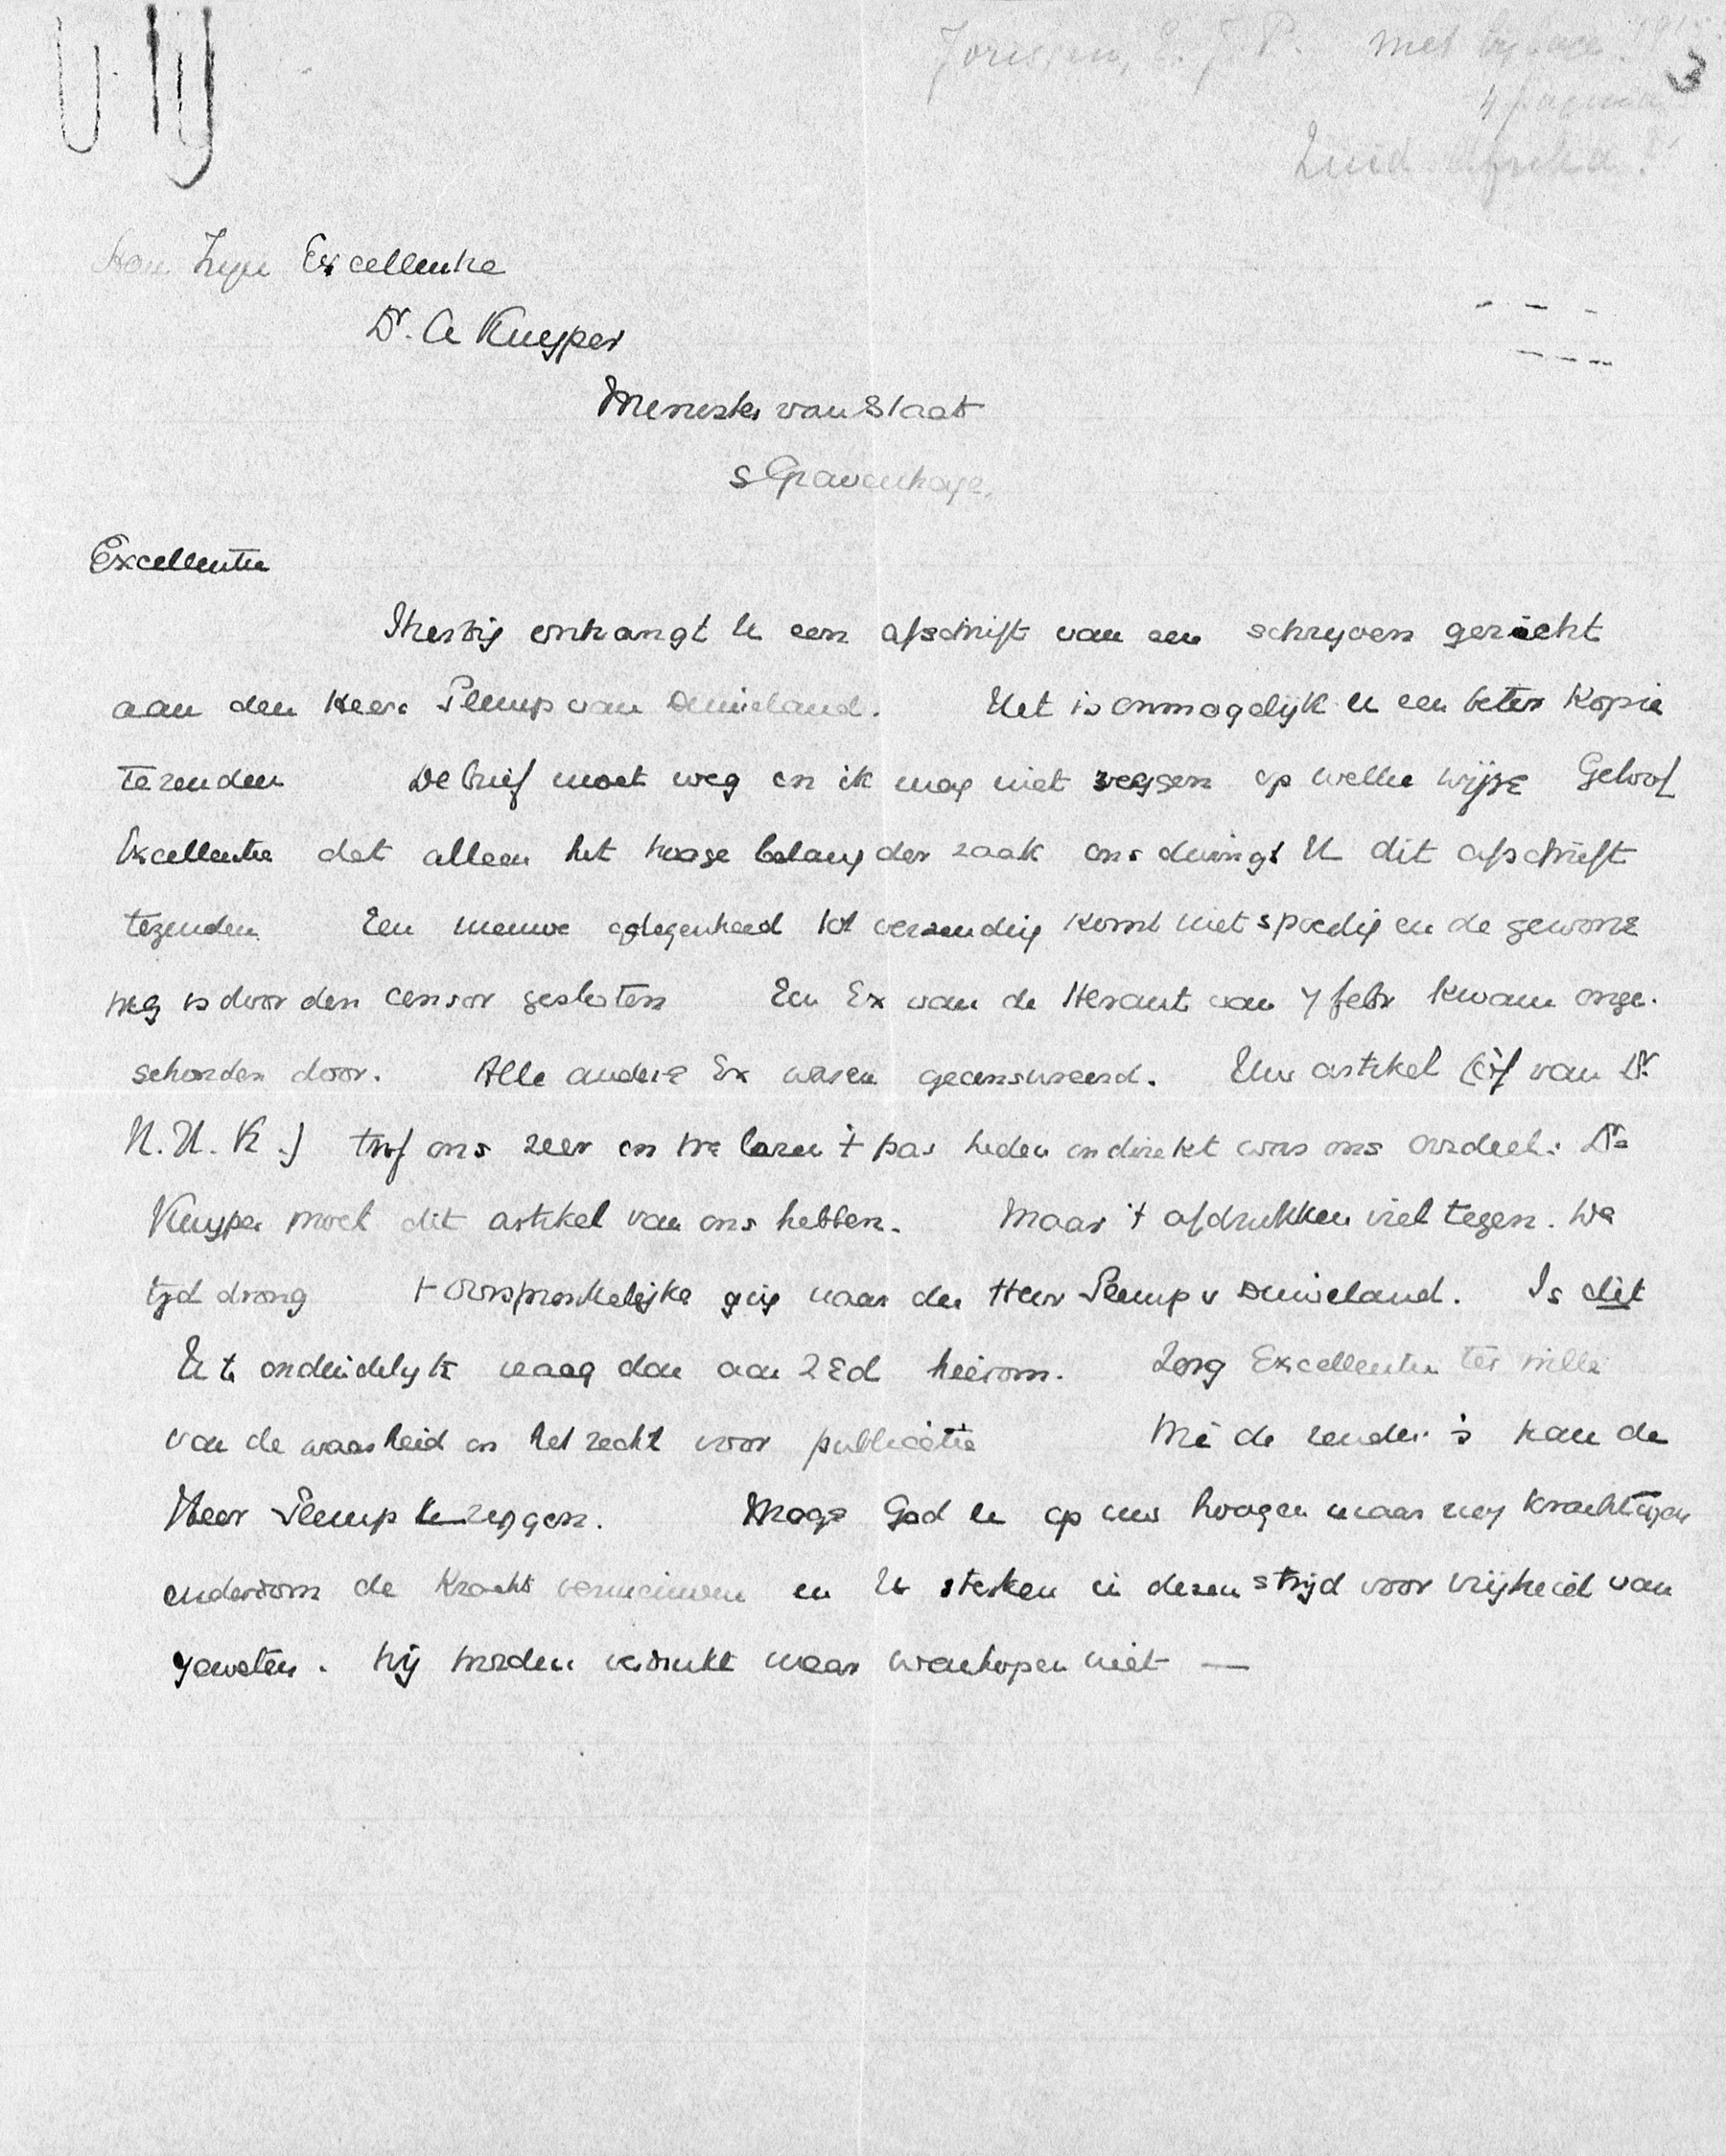 Jorissen, E. J. P. met bylage. 1915
3
4 pagina
Zuid Afrika!
Aan Zyn Excellentie
Dr. A Kuyper
Minister van Staat
s Gravenhage.
Excellentie
Hierbij ontvangt U een afschrift van een schrijven gericht
aan den Heer Plemp van Duiveland. Het is onmogelijk U een beter Kopie
te zenden De brief moet weg en ik mag niet zeggen op welke wijze Geloof
Excellentie dat alleen het hooge belang der zaak ons dwingt U dit afschrift
te zenden Een nieuwe gelegenheid tot verzending komt niet spoedig en de gewone
weg is door den censor gesloten Een Ex van de Heraut van 7 febr kwam onge-
schonden door. Alle andere Ex waren gecensureerd. Uw artikel (of van Dr.
H. H. K.) trof ons zeer en we lazen 't pas heden en direkt was ons oordeel: Dr
Kuyper moet dit artikel van ons hebben. Maar 't afdrukken viel tegen. De
tyd drong 't Oorspronkelijke ging naar den Heer Plemp v Duiveland. Is dit
U te onduidelyk vraag dan aan ZEd hierom. Zorg Excellentie ter wille
van de waarheid en het recht voor publicatie Wie de zender is kan de
Heer Plemp U zeggen. Moge God U op uw hoogen maar nog krachtigen
ouderdom de Kracht vernieuwen en U sterken in dezen strijd voor vrijheid van
geweten. Wij worden verdrukt maar wanhopen niet —